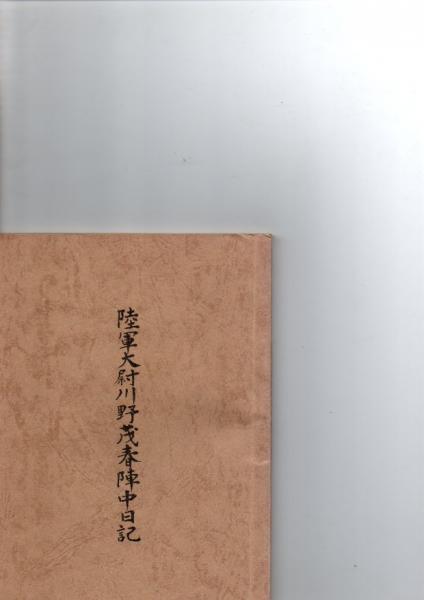 陸軍大尉川野茂春陣中日記